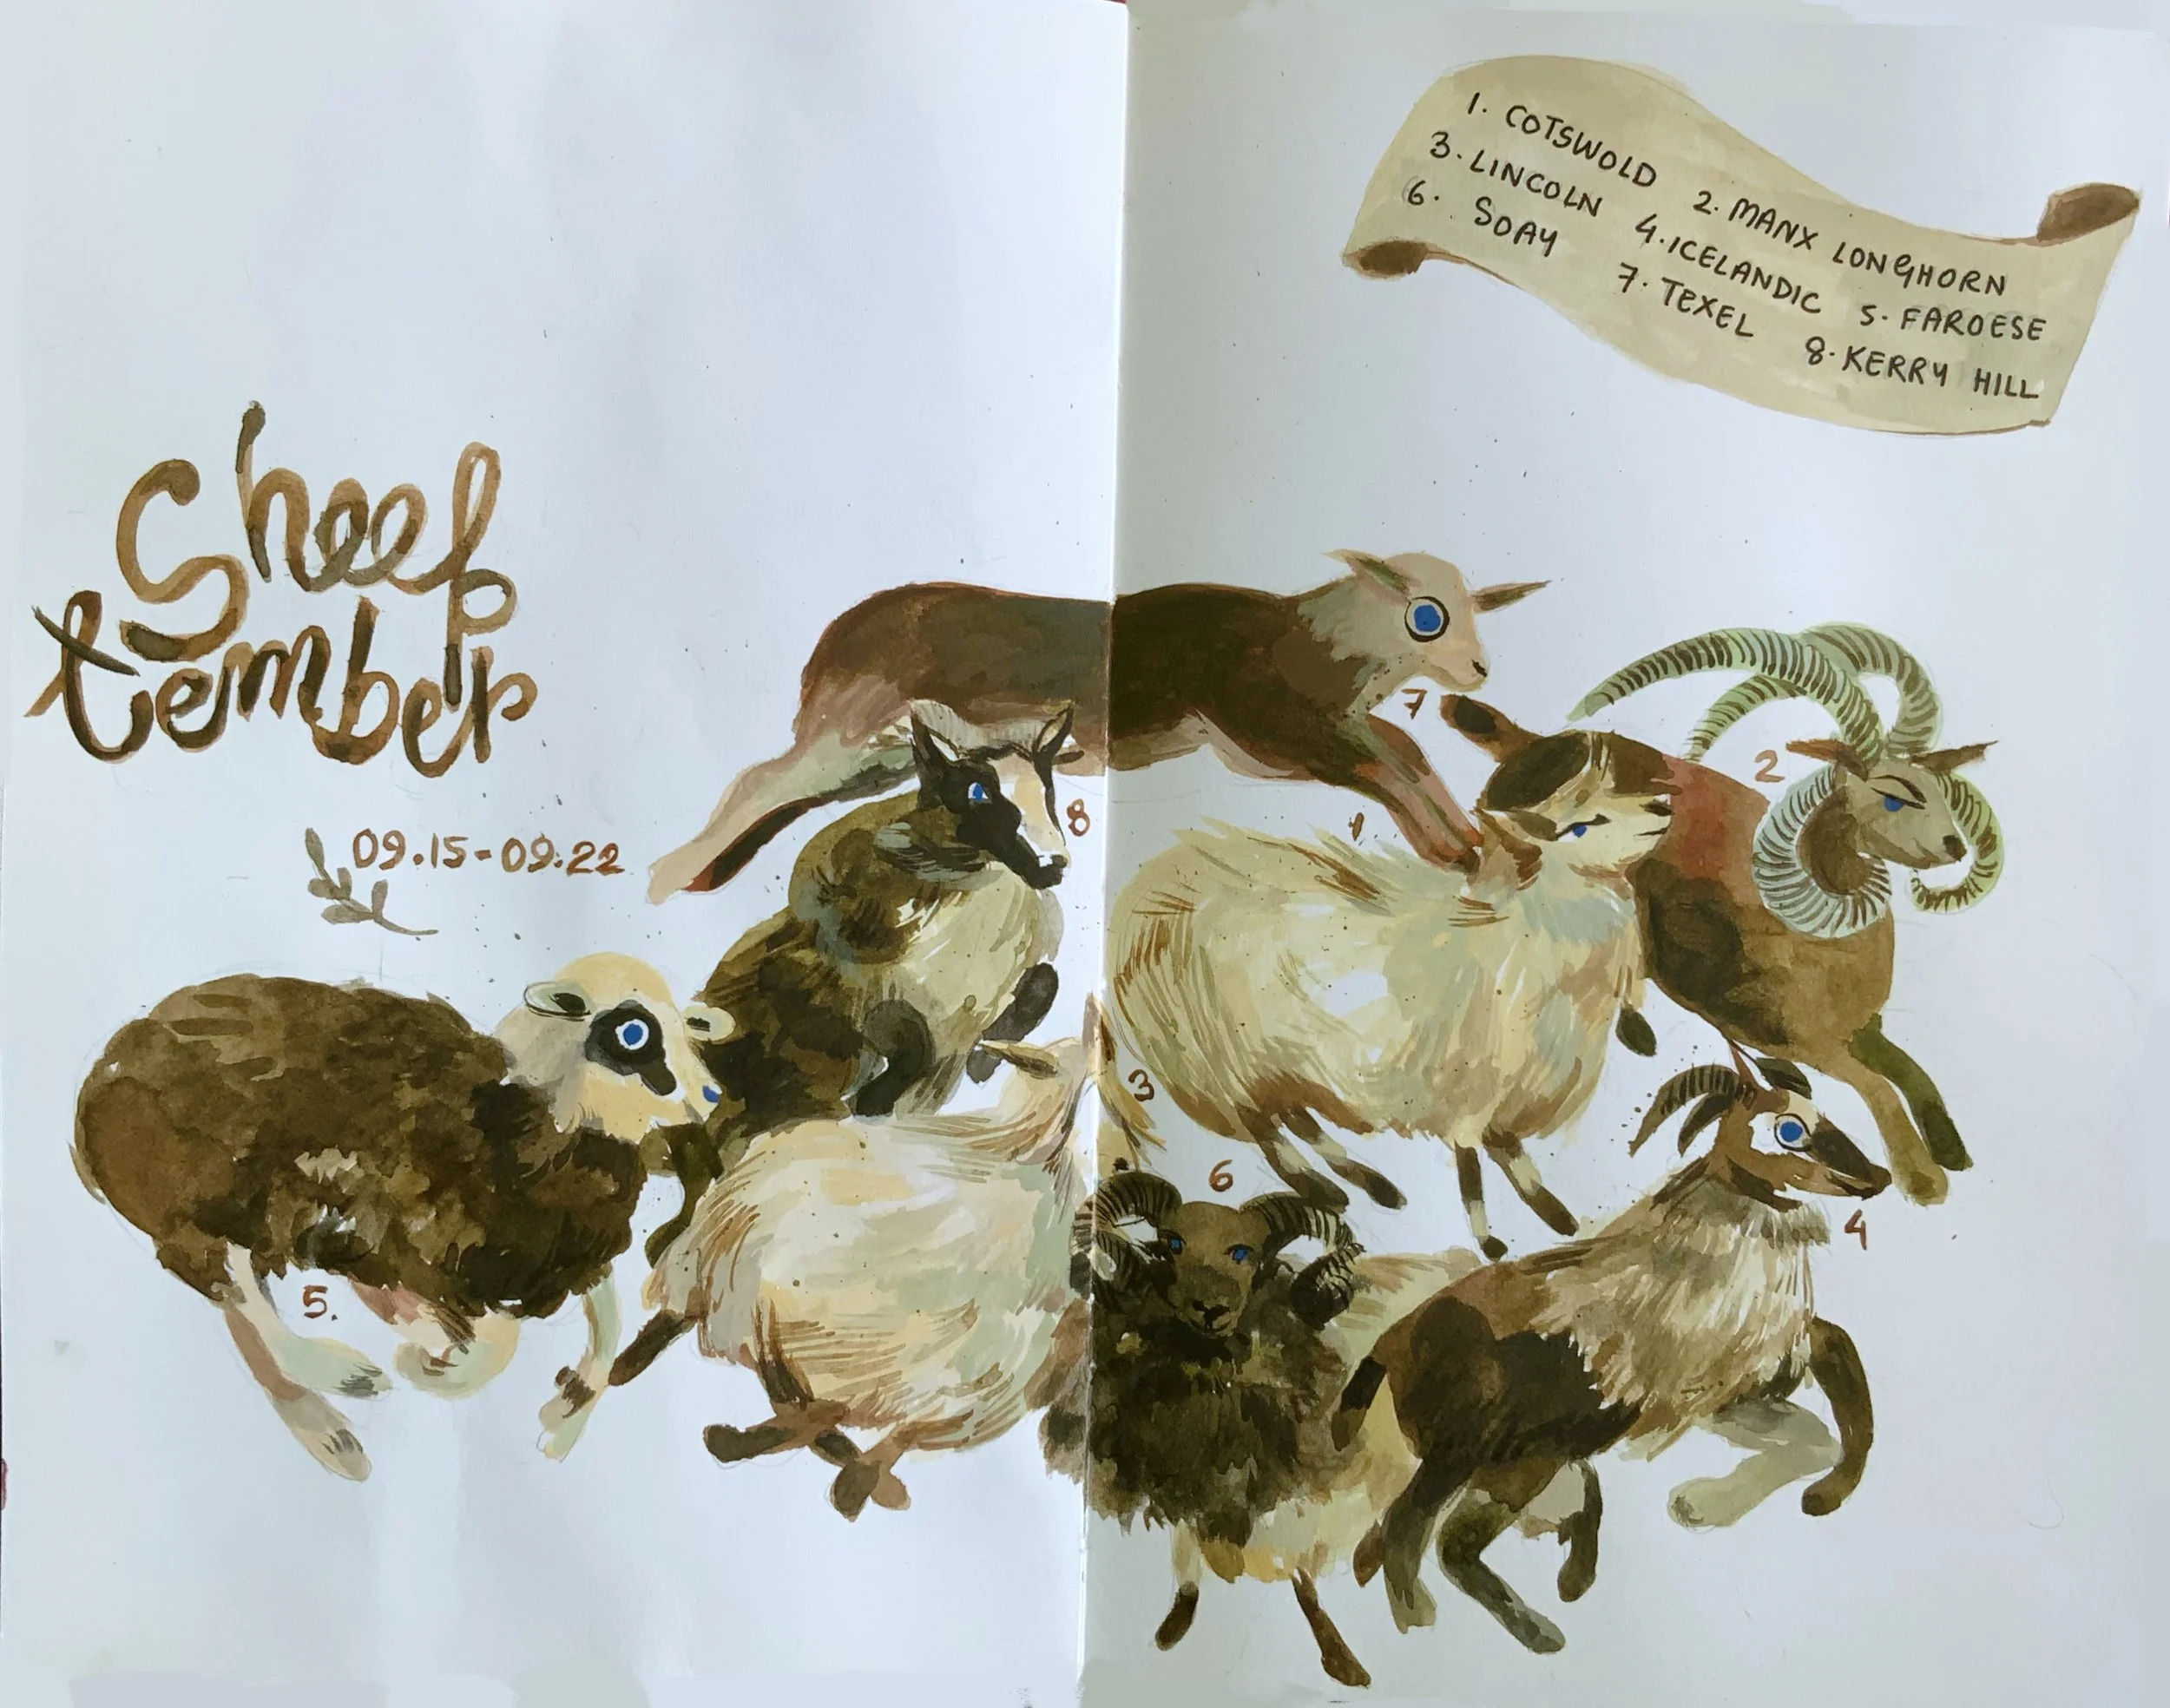 Sheep
tember
09.15-09.22
1. COTSWOLD 2. MANX LONGHORN
3. LINCOLN 4. ICELANDIC 5. FAROESE
6. SOAY 7. TEXEL 8. KERRY HILL
7
2
8
1
3
6
4
5.